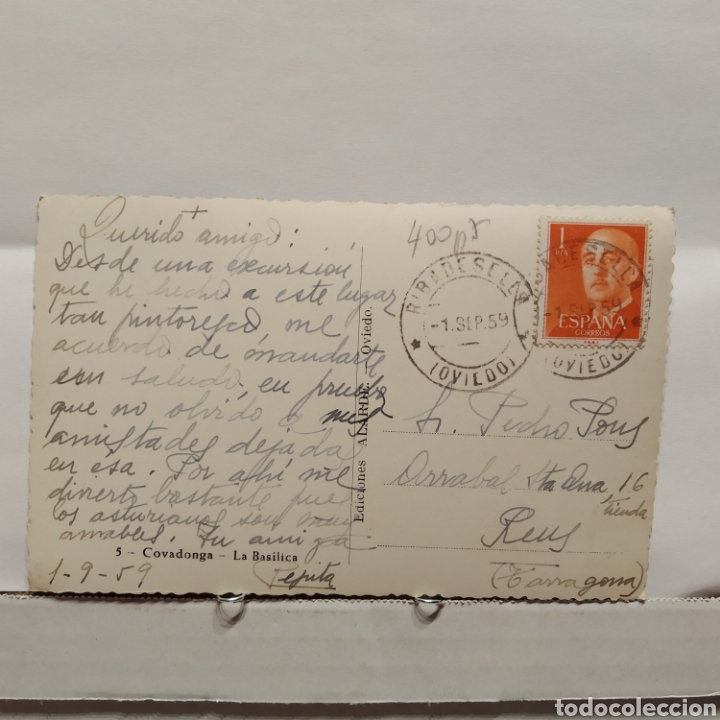 Querido amigo:
Desde una excursión
que he hecho a este lugar
tan pintoresco me
acuerdo de mandarte
un saludo, en prueba
que no olvido a mis
amistades dejadas
en esa. Por ahí me
divierto bastante pues
los asturianos son muy
amables. Tu amiga
5 - Covadonga - La Basílica
1-9-59 Pepita
Ediciones ALARDE. - Oviedo.
400 pts
RIBADESELLA
-1.SEP.59
(OVIEDO)
1
PTA
RIBADESELLA
-1.SEP.59
(OVIEDO)
ESPAÑA
CORREOS
Sr. Pedro Pons
Arrabal Sta Ana, 16
tienda
Reus
(Tarragona)
todocoleccion